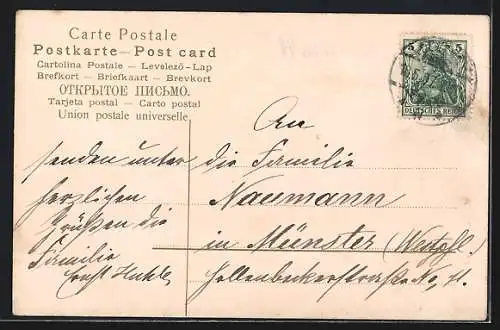 Carte Postale
Postkarte — Post card
Cartolina Postale — Levelező-Lap
Brefkort — Briefkaart — Brevkort
ОТКРЫТОЕ ПИСЬМО.
Tarjeta postal — Carto postal
Union postale universelle
5 5
DEUTSCHES REICH
An
die Familie
Naumann
in Münster (Westfl.
No. 11.
senden unter
herzlichen
Grüßen die
Familie
Ernst